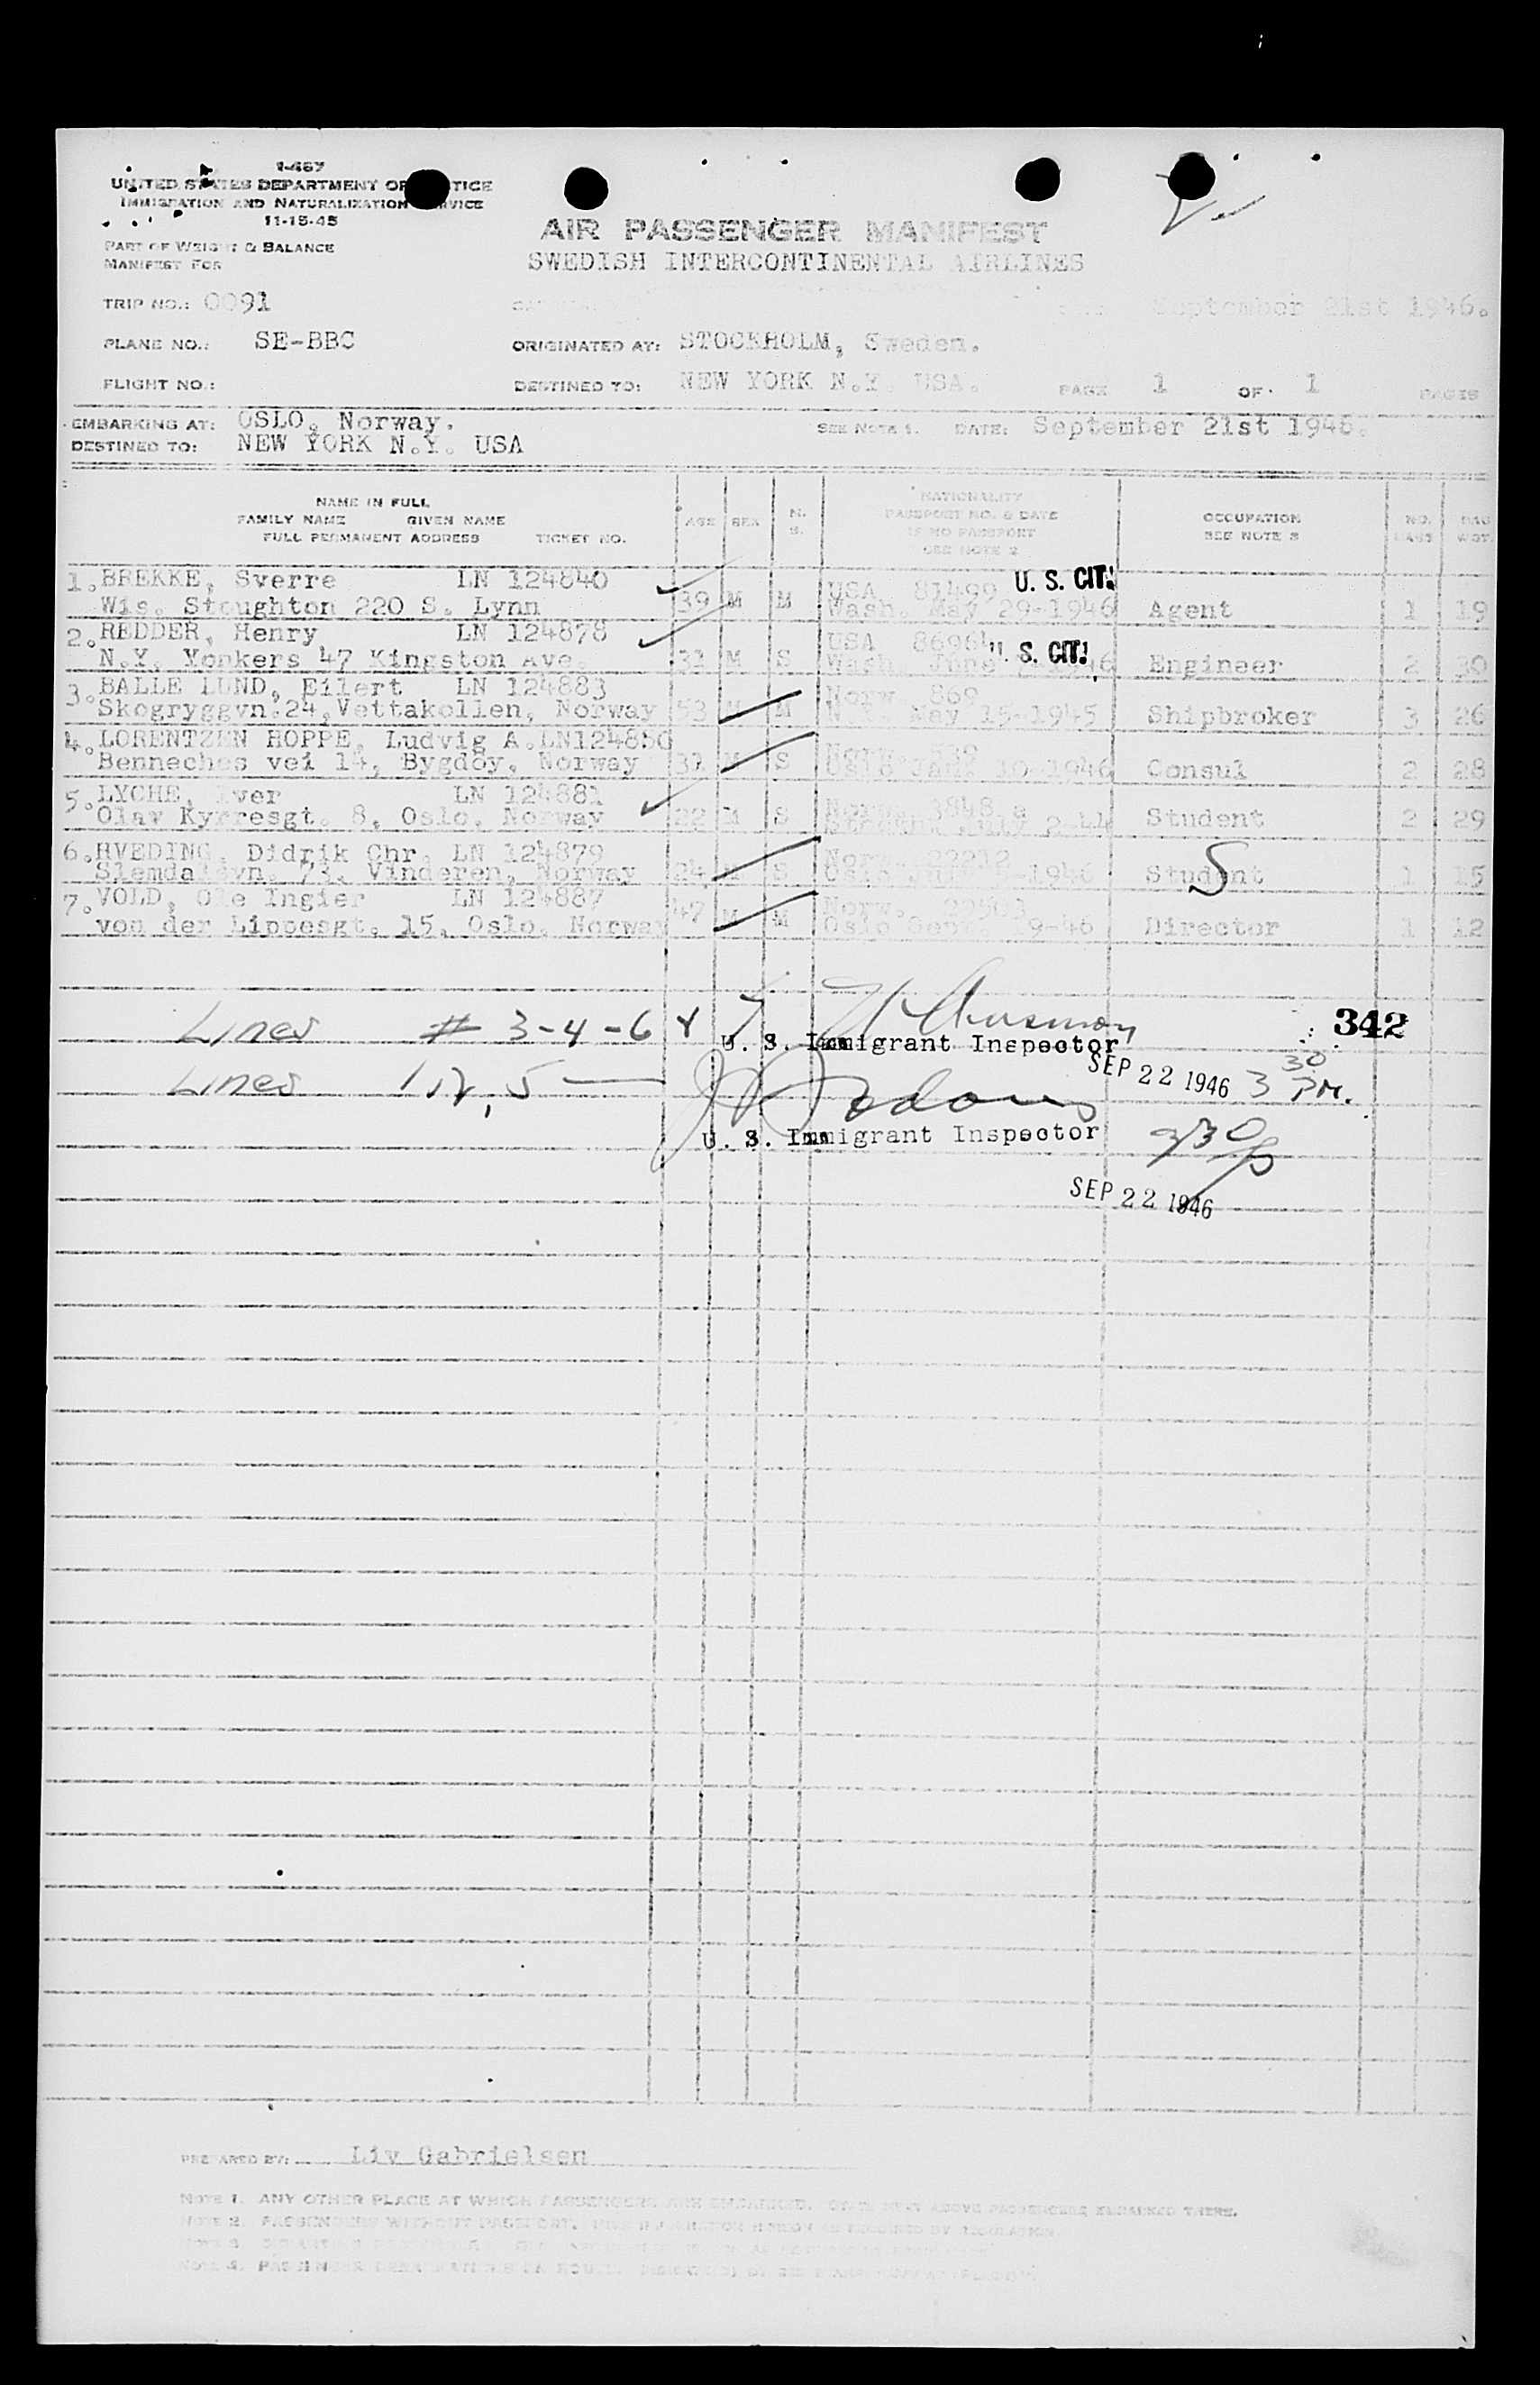 I-467
UNITED STATES DEPARTMENT OF JUSTICE
IMMIGRATION AND NATURALIZATION SERVICE
11-15-45
PART OF WEIGHT & BALANCE
MANIFEST FOR
AIR PASSENGER MANIFEST
SWEDISH INTERCONTINENTAL AIRLINES
TRIP NO.: 0091
September 21st 1946.
PLANE NO.: SE-BBC
ORIGINATED AT: STOCKHOLM, Sweden.
FLIGHT NO.:
DESTINED TO: NEW YORK N.Y. USA.
PAGE 1 OF 1 PAGES
EMBARKING AT: OSLO, Norway.
SEE NOTE 1. DATE: September 21st 1946.
DESTINED TO: NEW YORK N.Y. USA
NAME IN FULL
FAMILY NAME GIVEN NAME
FULL PERMANENT ADDRESS TICKET NO.
AGE SEX M. S.
NATIONALITY
PASSPORT NO. & DATE
IF NO PASSPORT
SEE NOTE 2
OCCUPATION
SEE NOTE 3
NO. BAGS
BAG WGT.
1. BREKKE, Sverre LN 124840 USA 81499 U. S. CIT.
Wis. Stoughton 220 S. Lynn 39 M M Wash. May 29-1946 Agent 1 19
2. REDDER, Henry LN 124878 USA 86964 U. S. CIT.
N.Y. Yonkers 47 Kingston Ave. 31 M S Wash. June 46 Engineer 2 30
3. BALLE LUND, Eilert LN 124883 Norw. 869
Skogryggvn.24, Vettakollen, Norway 53 M M May 15-1945 Shipbroker 3 26
4. LORENTZEN HOPPE, Ludvig A. LN Norw. 539
Bennechos vei 14, Bygdöy, Norway M S Oslo Jan. 10-1946 Consul 2 28
5. LYCHE, Iver LN 124881 Norw. 3848 a
Olav Kyrresgt. 8, Oslo, Norway 22 M S July 2-44 Student 2 29
6. HVEDING, Didrik Chr. LN 124879 Norw. 22212
Slemdalsvn. 73, Vinderen, Norway 24 M S Oslo -1946 Student 1 15
S
7. VOLD, Ole Ingier LN 124887 Norw.
von der Lippesgt. 15, Oslo, Norway 47 M M Oslo 19-46 Director 1 12
Lines # 3-4-6 & 7
342
U. S. Immigrant Inspector
SEP 22 1946 3 30 PM.
Lines 1, 2, 5
U. S. Immigrant Inspector 330p
SEP 22 1946
PREPARED BY: Liv Gabrielsen
NOTE 1. ANY OTHER PLACE AT WHICH PASSENGERS ARE EMBARKED. ABOVE PASSENGERS EMBARKED THERE.
NOTE 2. PASSENGERS WITHOUT PASSPORT, REQUIRED BY REGULATION.
NOTE 3.
NOTE 4. PASSENGER